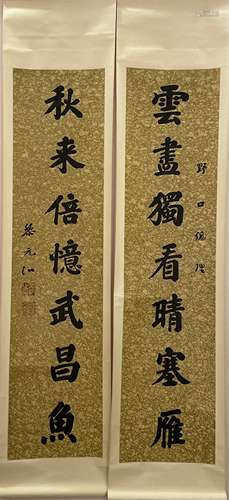 雲盡獨看晴塞雁
野口
秋来倍憶武昌魚
蔡元